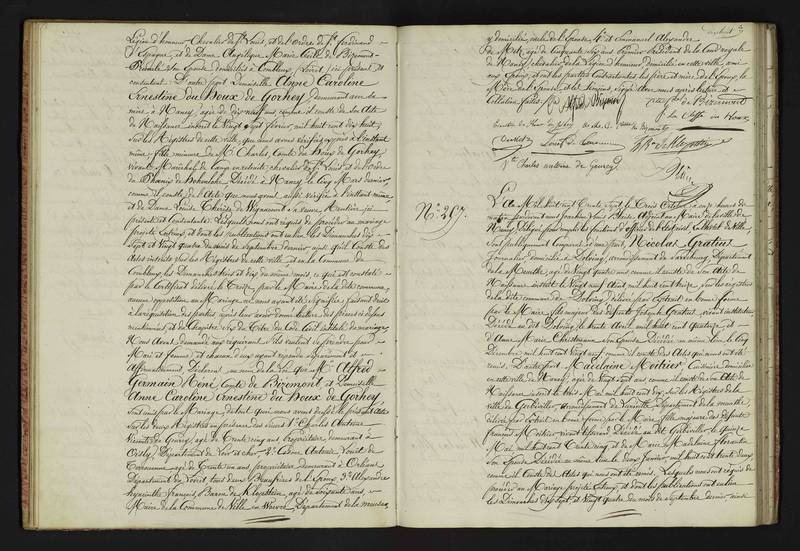 Légion d'honneur, Chevalier de St Louis, et de l'ordre de St Ferdinand
d'Espagne, et de Dame Angélique Marie Cécile de Bizemont
son Epouse domiciliés à Combleux, Loiret, ici présents et
consentant. D'autre part Demoiselle Anne Caroline
Ernestine du Houx de Gorhey, demeurant avec sa
mère à Nancy, âgée de dix neuf ans, comme il conste de son Acte
de Naissance inscrit le Vingt Sept février, mil huit cent dix huit,
sur les Registres de cette ville, que nous avons vérifiés à l'instant
même, fille mineure de Mr Charles, Comte du Houx de Gorhey,
vivant Maréchal de Camp en retraite, chevalier de St Louis et de l'ordre
Décédé à Nancy le Cinq Mars dernier,
comme il conste de l'Acte que nous avons aussi vérifié à l'instant même,
et de Dame Louise Thérèse de sa veuve, Rentière ici
présente et consentante. Lesquels nous ont requis de procéder au mariage
projeté entr'eux, et dont les publications ont eu lieu les Dimanches dix
Sept et Vingt quatre du mois de Septembre dernier, ainsi qu'il Conste des
Actes inscrits sur les Registres de cette ville et en la Commune de
Combleux, les Dimanches trois et dix du même mois, ce qui est constaté
par le Certificat délivré le treize, par le Maire de la dite commune,
aucune opposition au Mariage ne nous ayant été signifiée, faisant droit
à la réquisition des parties après leur avoir donné lecture des pièces ci dessus
mentionnées, et du Chapitre Six du Titre du Code Civil intitulé du mariage,
Nous Avons demandé aux requérants s'ils veulent se prendre pour
Mari et femme, et chacun d'eux ayant répondu séparément et
Affirmativement, Déclarons au nom de la Loi que Mr Alfred
Germain René Comte de Bizemont, et Demoiselle
Anne Caroline Ernestine du Houx de Gorhey,
Sont unis par le Mariage, de tout quoi nous avons dressé le présent Acte
Sur les deux Registres en présence des Sieurs 1° Charles Antoine
Vicomte de Gourcy, âgé de Trente cinq ans, Propriétaire, demeurant à
Département de Loir et cher 2° Côme Antoine Louet de
âgé de Trente un ans, propriétaire demeurant à Orléans
Département du Loiret tous deux Beaufrères de l'Epoux, 3° Alexandre
hyacinthe François Baron de Klopstein, âgé de Soixante ans,
Maire de la Commune de Ville en Woivre, Département de la meuse,
y domicilié, oncle de l'Epouse, 4° et Emmanuel Alexandre
de Metz, âgé de Cinquante Six ans, Premier Président de la Cour royale
de Nancy, chevalier de la Légion d'honneur, domicilié en cette ville, ami
aux Epoux, et ont les parties Contractantes les père et mère de l'Epoux, la
Mère de l'Epouse et les témoins, Signé avec nous après lecture et
Collation faites.
Alfred Bizemont
de Bizemont
du Houx
Louet de
Vte Charles antoine de Gourcy
N° 267.
L'An Mil huit cent Trente Sept, le Trois Octobre, à onze heures du
matin pardevant nous Adjoint au Maire de la ville de
Nancy, Délégué pour remplir les fonctions d'officier de l'Etat civil, en l'hôtel de Ville,
Sont publiquement Comparus à une part, Nicolas Gratius
Journalier domicilié à arrondissement de Sarrebourg, Département
de la Meurthe, âgé de Vingt quatre ans comme il conste de son Acte de
Naissance inscrit le Vingt neuf Août, mil huit cent treize, sur les registres
de la dite commune de délivré par Extrait en bonne forme
par le Maire, fils majeur des défunts Joseph Gratius, vivant instituteur
Décédé au dit le trente Avril, mil huit cent quatorze, et
d'Anne Marie Christmann son Epouse Décédée au même lieu, le Cinq
Décembre, mil huit cent vingt neuf, comme il conste des Actes qui nous ont été
remis. D'autre part Madelaine Moitrier, Cuisinière, domiciliée
en cette ville de Nancy, âgée de Vingt Sept ans, comme il conste de son Acte de
Naissance inscrit le trois Mai, mil huit cent dix, sur les Registres de la
ville de Gerbéviller, Arrondissement de Lunéville, Département de la meurthe,
délivré par Extrait en bonne forme par le Maire, fille majeure des défunts
Moitrier, vivant Décédé au dit Gerbéviller, le quinze
Mai, mil huit cent Vingt cinq, et de Marie Madelaine Florentin
Son Epouse Décédée au même lieu, le deux février, mil huit cent trente deux,
comme il conste des Actes qui nous ont été remis. Lesquels nous ont requis de
procéder au Mariage projeté entr'eux, et dont les publications ont eu lieu
les Dimanches dix Sept et Vingt quatre du mois de Septembre dernier, ainsi